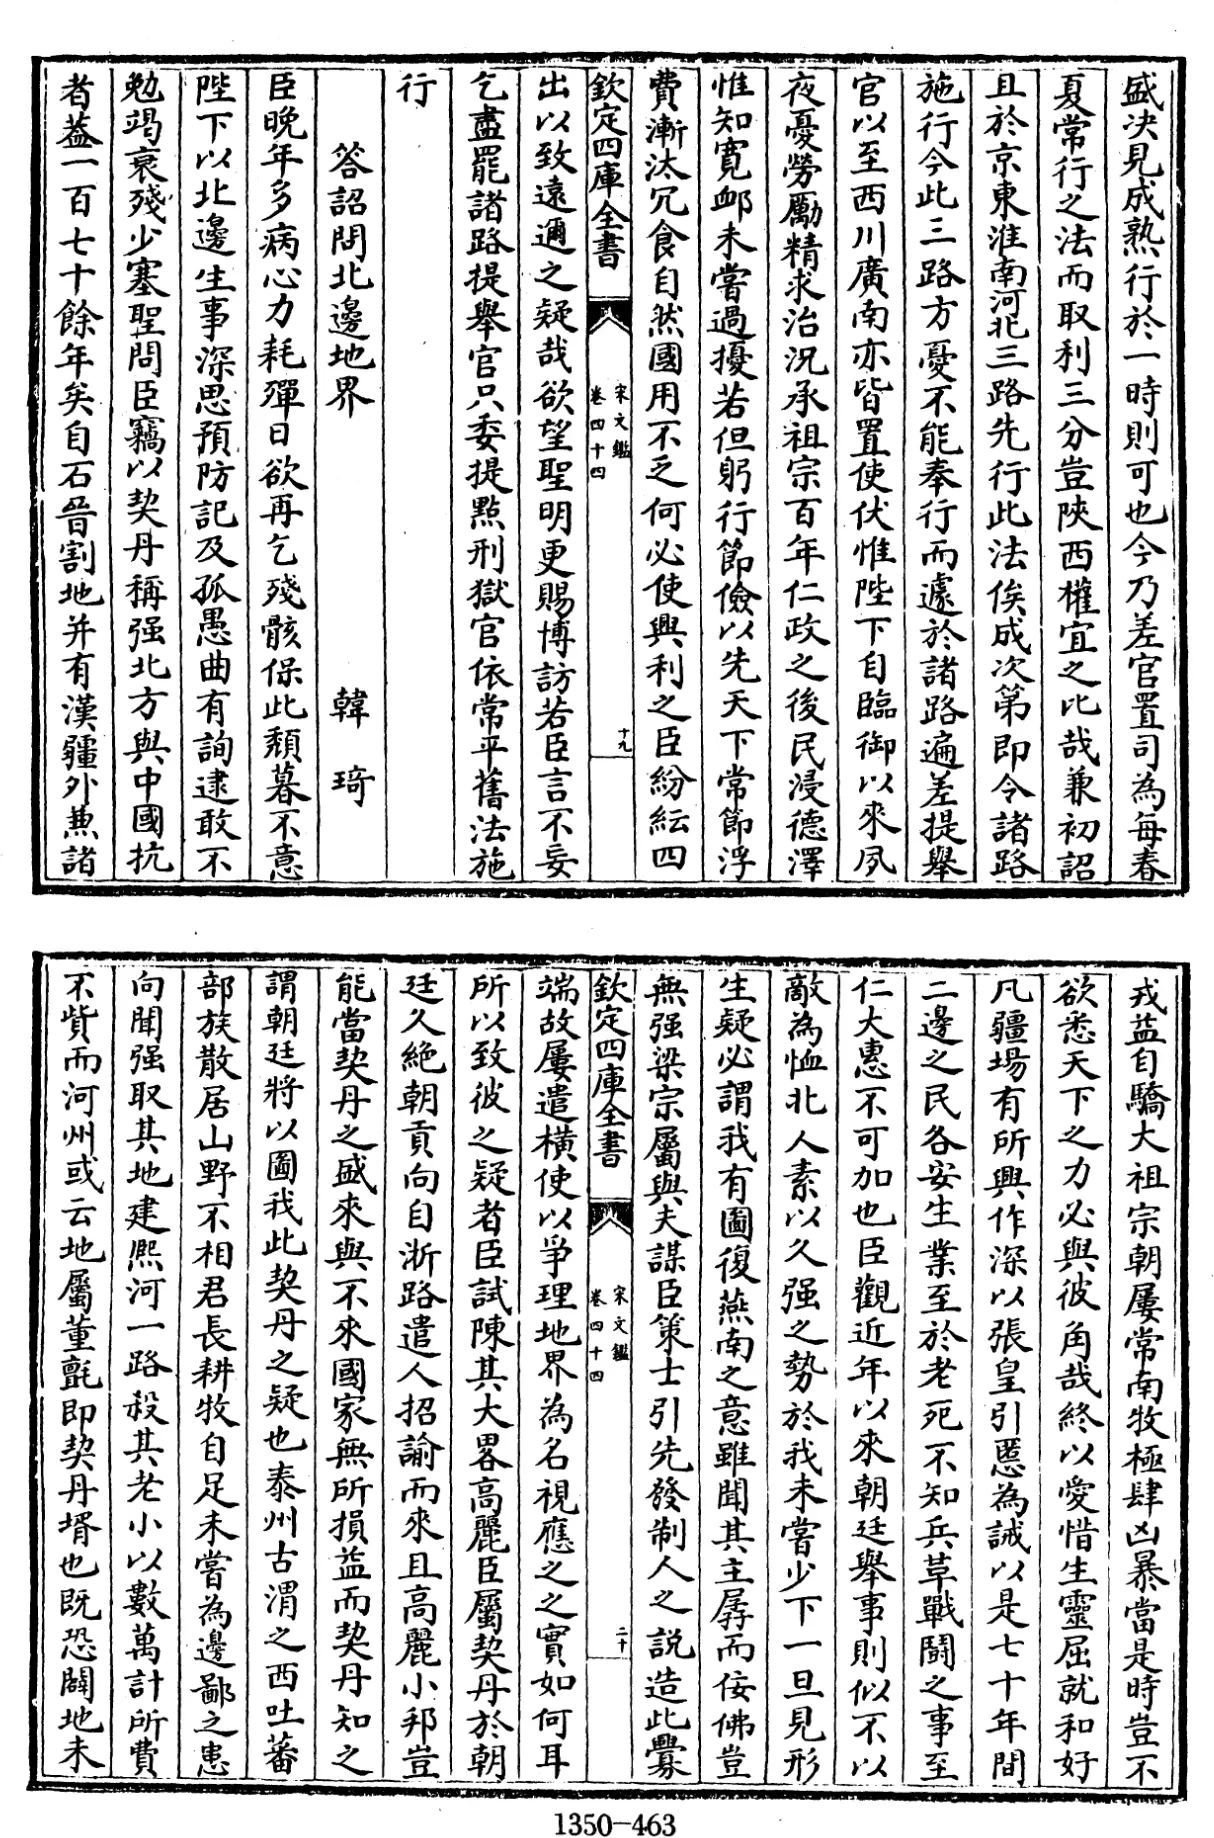 盛決見成熟行於一時則可也今乃差官置司為每春
夏常行之法而取利三分豈陝西權宜之比哉兼初詔
且於京東淮南河北三路先行此法俟成次第即令諸路
施行今此三路方憂不能奉行而遽於諸路遍差提舉
官以至西川廣南亦皆置使伏惟陛下自臨御以來夙
夜憂勞勵精求治況承祖宗百年仁政之後民浸德澤
惟知寛䘏未嘗過擾若但躬行節儉以先天下常節浮
費漸汰冗食自然國用不乏何必使興利之臣紛紜四
欽定四庫全書
宋文鑑
卷四十四
十九
出以致遠邇之疑哉欲望聖明更賜博訪若臣言不妄
乞盡罷諸路提舉官只委提點刑獄官依常平舊法施
行
答詔問北邊地界
韓琦
臣晚年多病心力耗殫日欲再乞殘骸保此頽暮不意
陛下以北邊生事深思預防記及孤愚曲有詢逮敢不
勉竭衰殘少塞聖問臣竊以契丹稱强北方與中國抗
者葢一百七十餘年矣自石晉割地并有漢疆外兼諸
戎益自驕大祖宗朝屢常南牧極肆凶暴當是時豈不
欲悉天下之力必與彼角哉終以愛惜生靈屈就和好
凡疆場有所興作深以張皇引慝為誡以是七十年間
二邊之民各安生業至於老死不知兵革戰鬬之事至
仁大惠不可加也臣觀近年以來朝廷舉事則似不以
敵為恤北人素以久强之勢於我未嘗少下一旦見形
生疑必謂我有圖復燕南之意雖聞其主孱而佞佛豈
無强梁宗屬與夫謀臣策士引先發制人之説造此釁
欽定四庫全書
宋文鑑
卷四十四
二十
端故屢遣横使以爭理地界為名視應之之實如何耳
所以致彼之疑者臣試陳其大畧高麗臣屬契丹於朝
廷久絶朝貢向自浙路遣人招諭而來且高麗小邦豈
能當契丹之盛來與不來國家無所損益而契丹知之
謂朝廷將以圖我此契丹之疑也秦州古渭之西吐蕃
部族散居山野不相君長耕牧自足未嘗為邊鄙之患
向聞强取其地建熈河一路殺其老小以數萬計所費
不貲而河州或云地屬董氊即契丹壻也既恐闢地未
1350-463